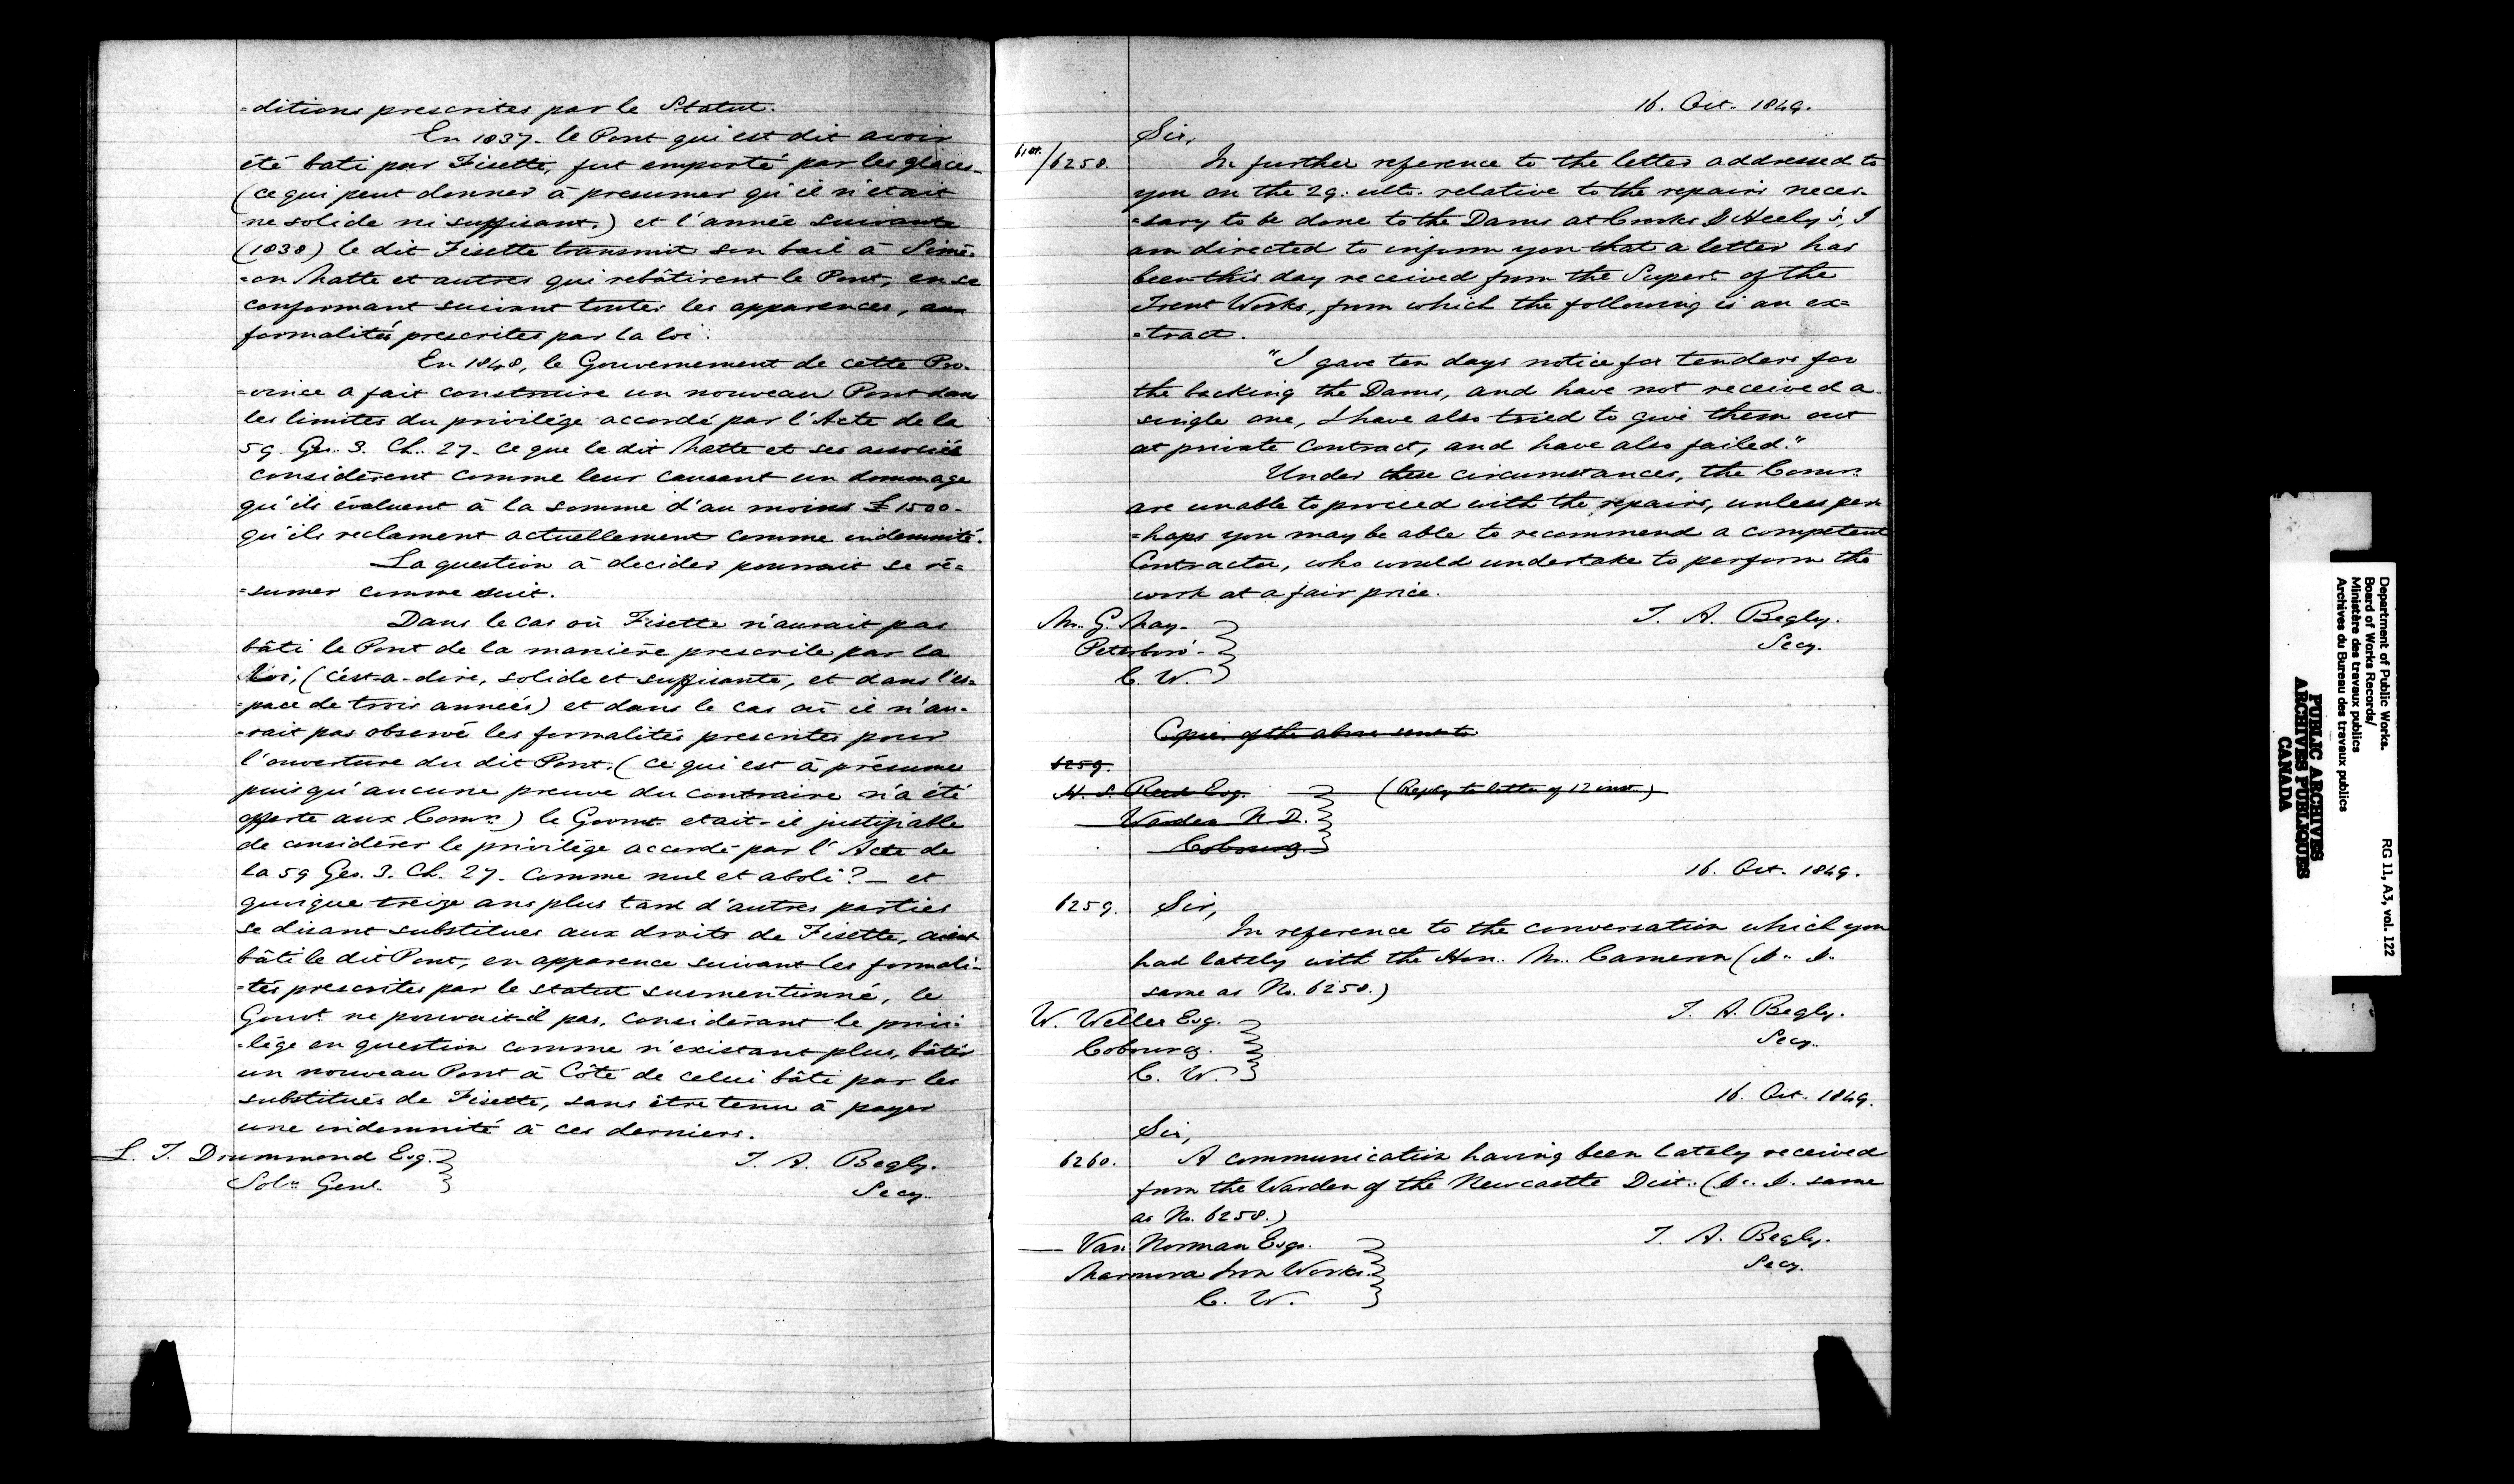 =ditions prescrites par le Statut.
En 1837- le Pont qui est dit avoir
été bati par Fisette, fut emporté par les glaces-
(ce qui peut donner à presumer qu'il n'était
ne solide ni suffisant.) et l'année suivante
(1838) le dit Fisette transmit son bail à Simé=
=on Matte et autres qui rebâtirent le Pont, en se
conformant suivant toutes les apparences, aux
formalités prescrites par la loi.
En 1848, le Gouvernement de cette Pro-
=vince a fait construire un nouveau Pont dans
les limites du privilége accordé par l'Acte de la
59. Geo. 3. Ch. 27- ce que le dit Matte et ses associés
considèrent comme leur causant un dommage
qu'ils évaluent à la somme d'au moins £1500-
qu'ils reclament actuellement comme indemnité.
La question à decider pourrait se ré=
=sumer comme suit.
Dans le cas où Fisette n'aurait pas
bâti le Pont de la manière prescrite par la
loi, (c'est-a-dire, solide et suffisante, et dans l'es=
=pace de trois années) et dans le cas où il n'au-
=rait pas observé les formalités prescrites pour
l'ouverture du dit Pont. (ce qui est à présumer
puisqu'aucune preuve du contraire n'a été
offerte aux Comrs.) le Govmt. etait-il justifiable
de considérer le privilége accordé par l'Acte de
la 59 Geo. 3. Ch. 27- comme nul et aboli? — et
quoique treize ans plus tard d'autres parties
se disant substitues aux droits de Fisette, aient
bâti le dit Pont, en apparence suivant les formali=
=tés prescrites par le statut susmentionné, le
Gouvt. ne pouvait-il pas, considérant le privi=
=lége en question comme n'existant plus, bâtir
un nouveau Pont à Côté de celui bâti par les
substitués de Fisette, sans être tenu à payer
une indemnité à ces derniers.
L. T. Drummond Esq.
Solr. Genl.
T. A. Begly.
Secy.
16. Oct. 1849.
Sir,
/6258. In further reference to the letter addressed to
you on the 29. ulto. relative to the repairs neces-
=sary to be done to the Dams at Crooks & Heely's, I
am directed to inform you that a letter has
been this day received from the Supert. of the
Trent Works, from which the following is an ex=
=tract.
"I gave ten days notice for tenders for
the backing the Dams, and have not received a
single one, I have also tried to give them out
at private Contract, and have also failed."
Under these circumstances, the Comrs.
are unable to proceed with the repairs, unless per=
=haps you may be able to recommend a competent
Contractor, who would undertake to perform the
work at a fair price.
T. A. Begly.
Secy.
Mr. G. May-
Peterboro'-
C. W.
Copies of the above sent to
6259.
H. S. Reed Esq. (Reply to letter of 12 inst.)
Warden N. D.
Cobourg.
16. Oct. 1849.
6259. Sir,
In reference to the conversation which you
had lately with the Hon. M. Cameron (&. &.
same as No. 6258.)
T. A. Begly.
Secy.
W. Weller Esq.
Cobourg.
C. W.
16. Oct. 1849.
Sir,
6260. A communication having been lately received
from the Warden of the Newcastle Dist. (&. &. same
as No. 6258.)
T. A. Begly.
Secy.
— Van Norman Esqr.
Marmora Iron Works.
C. W.
Department of Public Works.
Board of Works Records/
Ministère des travaux publics
Archives du Bureau des travaux publics
RG 11, A3, vol. 122
PUBLIC ARCHIVES
ARCHIVES PUBLIQUES
CANADA